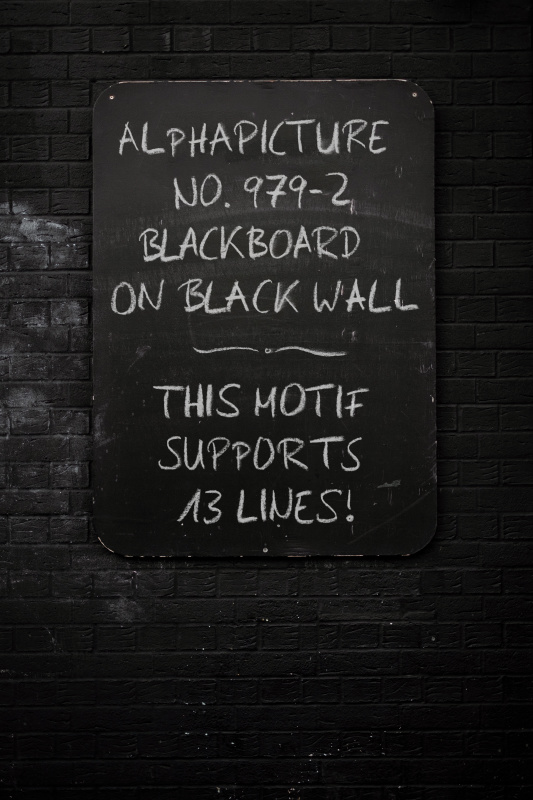 ALPHAPICTURE
NO. 979-2
BLACKBOARD
ON BLACK WALL
THIS MOTIF
SUPPORTS
13 LINES!